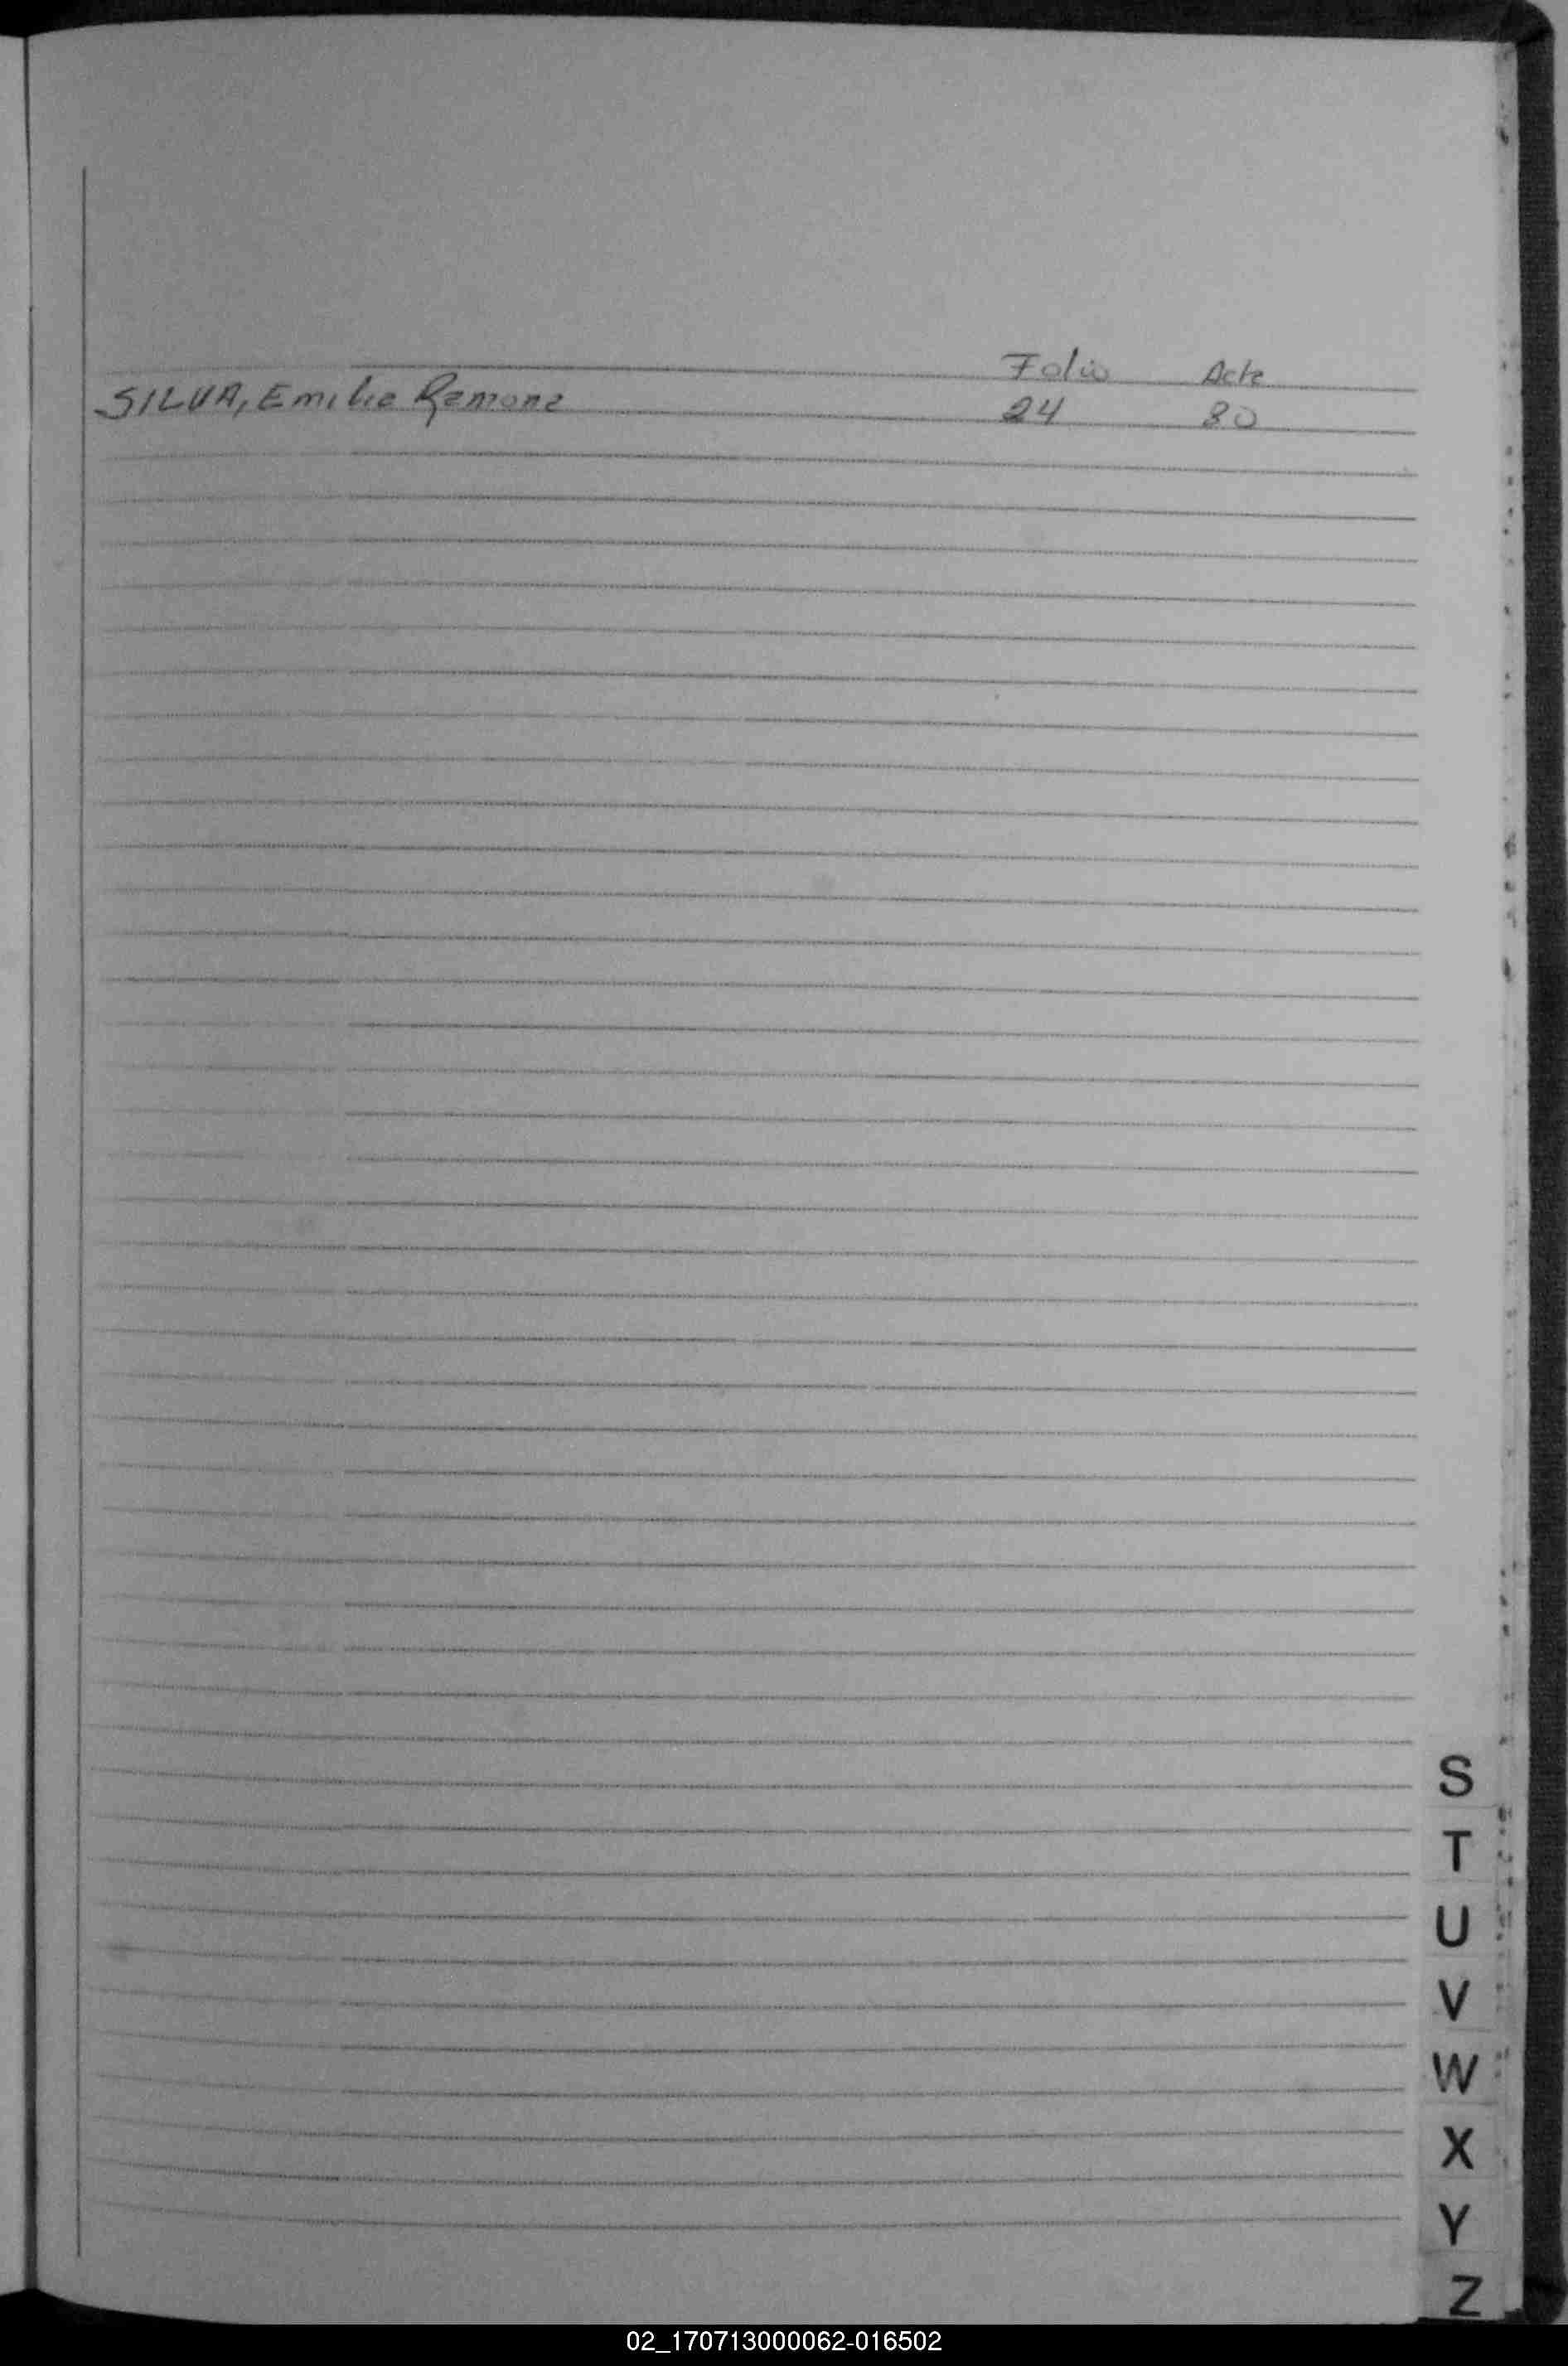 Folio Acta
SILVA, Emilia Ramona 24 80
S
T
U
V
W
X
Y
Z
02_170713000062-016502